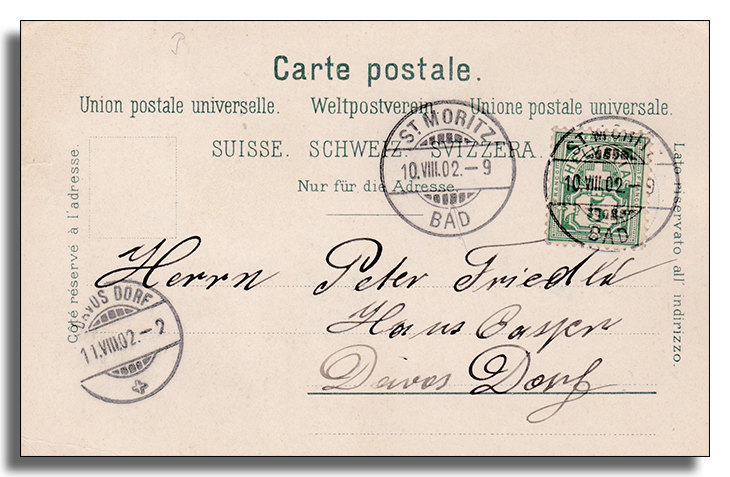 Carte postale.
Union postale universelle. Weltpostverein. Unione postale universale.
SUISSE. SCHWEIZ. SVIZZERA.
Nur für die Adresse.
Côté réservé à l'adresse.
Lato riservato all' indirizzo.
ST. MORITZ
10.VIII.02.-9
BAD
ST. MORITZ
10.VIII.02.-9
BAD
Herrn Peter Friedli
Haus Casper
Davos Dorf
DAVOS DORF
11.VIII.02.-2